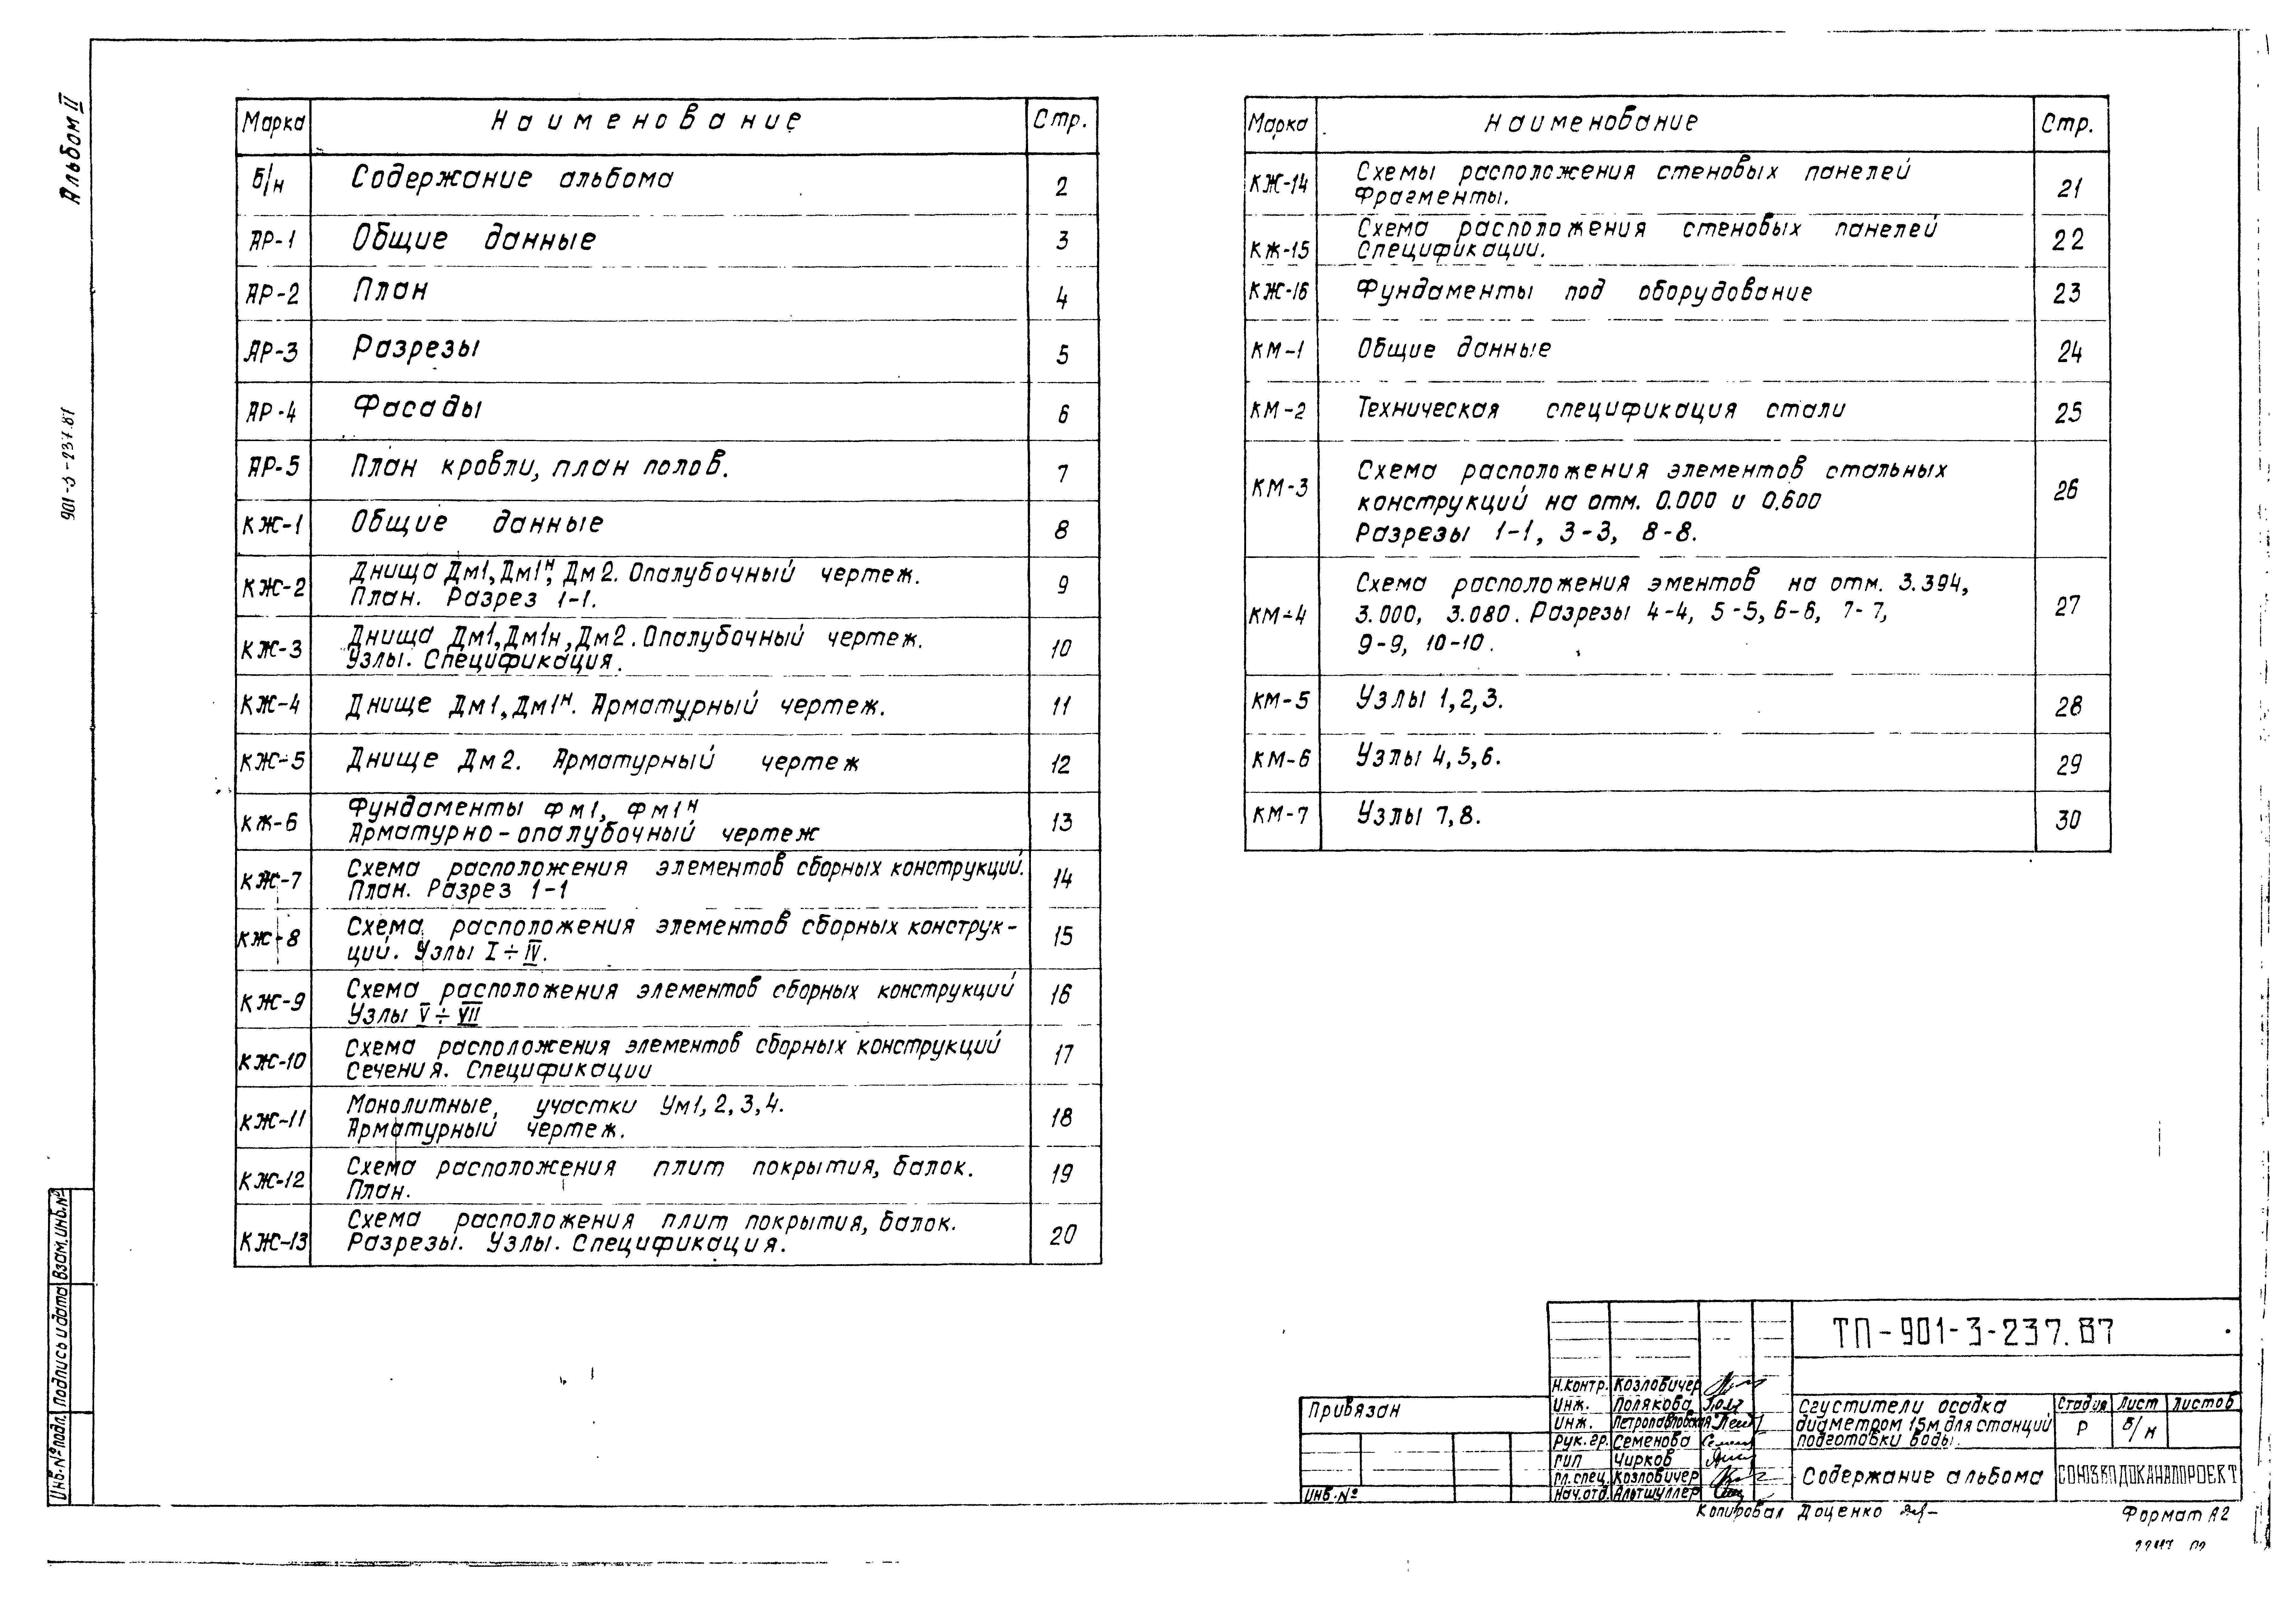 Альбом II
901-3-237.87
Марка Наименование Стр.
б/н Содержание альбома 2
АР-1 Общие данные 3
АР-2 План 4
АР-3 Разрезы 5
АР-4 Фасады 6
АР-5 План кровли, план полов. 7
КЖ-1 Общие данные 8
КЖ-2 Днища Дм1, Дм1н, Дм2. Опалубочный чертеж. 9
План. Разрез 1-1.
КЖ-3 Днища Дм1, Дм1н, Дм2. Опалубочный чертеж. 10
Узлы. Спецификация.
КЖ-4 Днище Дм1, Дм1н. Арматурный чертеж. 11
КЖ-5 Днище Дм2. Арматурный чертеж 12
КЖ-6 Фундаменты Фм1, Фм1н 13
Арматурно-опалубочный чертеж
КЖ-7 Схема расположения элементов сборных конструкций. 14
План. Разрез 1-1
КЖ-8 Схема расположения элементов сборных конструк- 15
ций. Узлы I÷IV.
КЖ-9 Схема расположения элементов сборных конструкций 16
Узлы V÷VII
КЖ-10 Схема расположения элементов сборных конструкций 17
Сечения. Спецификации
КЖ-11 Монолитные участки Ум1, 2, 3, 4. 18
Арматурный чертеж.
КЖ-12 Схема расположения плит покрытия, балок. 19
План.
КЖ-13 Схема расположения плит покрытия, балок. 20
Разрезы. Узлы. Спецификация.
Марка Наименование Стр.
КЖ-14 Схемы расположения стеновых панелей 21
Фрагменты.
КЖ-15 Схема расположения стеновых панелей 22
Спецификации.
КЖ-16 Фундаменты под оборудование 23
КМ-1 Общие данные 24
КМ-2 Техническая спецификация стали 25
КМ-3 Схема расположения элементов стальных 26
конструкций на отм. 0.000 и 0.600
Разрезы 1-1, 3-3, 8-8.
КМ-4 Схема расположения эментов на отм. 3.394, 27
3.000, 3.080. Разрезы 4-4, 5-5, 6-6, 7-7,
9-9, 10-10.
КМ-5 Узлы 1,2,3. 28
КМ-6 Узлы 4,5,6. 29
КМ-7 Узлы 7,8. 30
Инв.№подл. Подпись и дата Взам.инв.№
Привязан
Инв.№
ТП-901-3-237.87
Н.контр. Козловичер
Инж. Полякова
Инж. Петропавловская
Рук.гр. Семенова
ГИП Чирков
Гл.спец. Козловичер
Нач.отд. Альтшуллер
Сгустители осадка
диаметром 15м для станций
подготовки воды.
Стадия Лист Листов
Р б/н
Содержание альбома
СОЮЗВОДОКАНАЛПРОЕКТ
Копировал Доценко
Формат А2